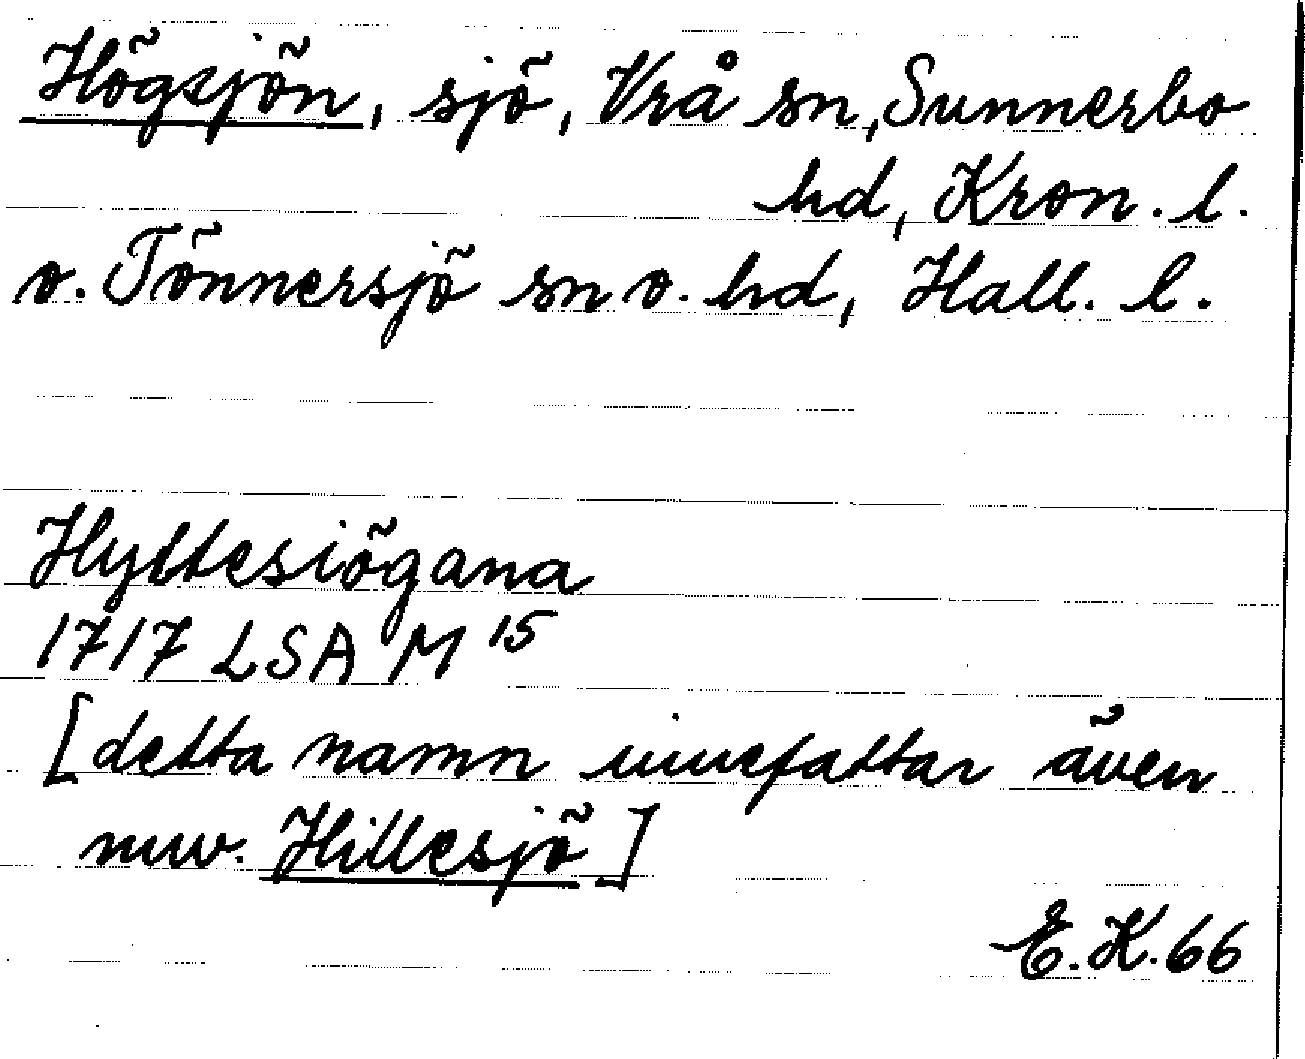 Högsjön, sjö, Vrå sn, Sunnerbo
hd, Kron. l.
o. Tönnersjö sn o. hd, Hall. l.
Hyttesiögana
1717 LSA M 15
[detta namn innefattar även
nuv. Hillesjö]
E.K.66